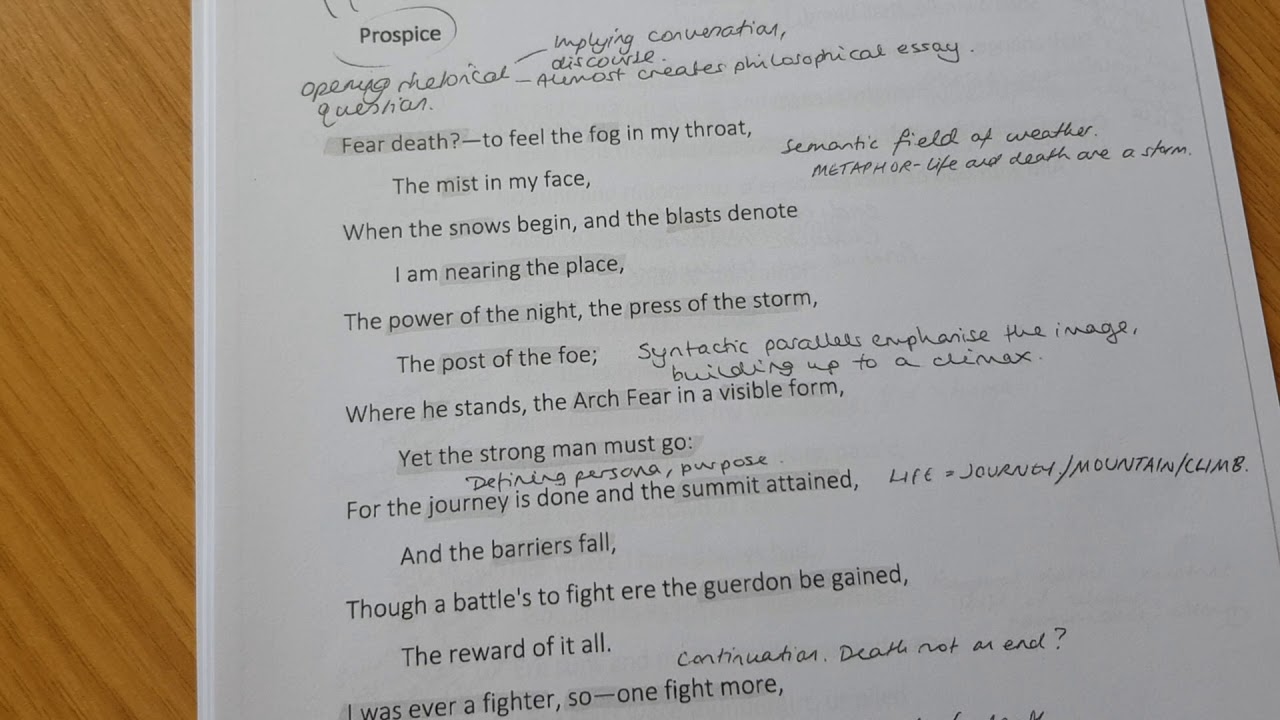 Prospice
Implying conversation,
discourse.
opening rhetorical — Almost creates philosophical essay.
question.
Fear death?—to feel the fog in my throat,
semantic field of weather.
METAPHOR - life and death are a storm.
The mist in my face,
When the snows begin, and the blasts denote
I am nearing the place,
The power of the night, the press of the storm,
The post of the foe;
Syntactic parallels emphasise the image,
building up to a climax.
Where he stands, the Arch Fear in a visible form,
Yet the strong man must go:
Defining persona, purpose.
For the journey is done and the summit attained,
LIFE = JOURNEY/MOUNTAIN/CLIMB.
And the barriers fall,
Though a battle's to fight ere the guerdon be gained,
The reward of it all.
Continuation. Death not an end?
I was ever a fighter, so—one fight more,